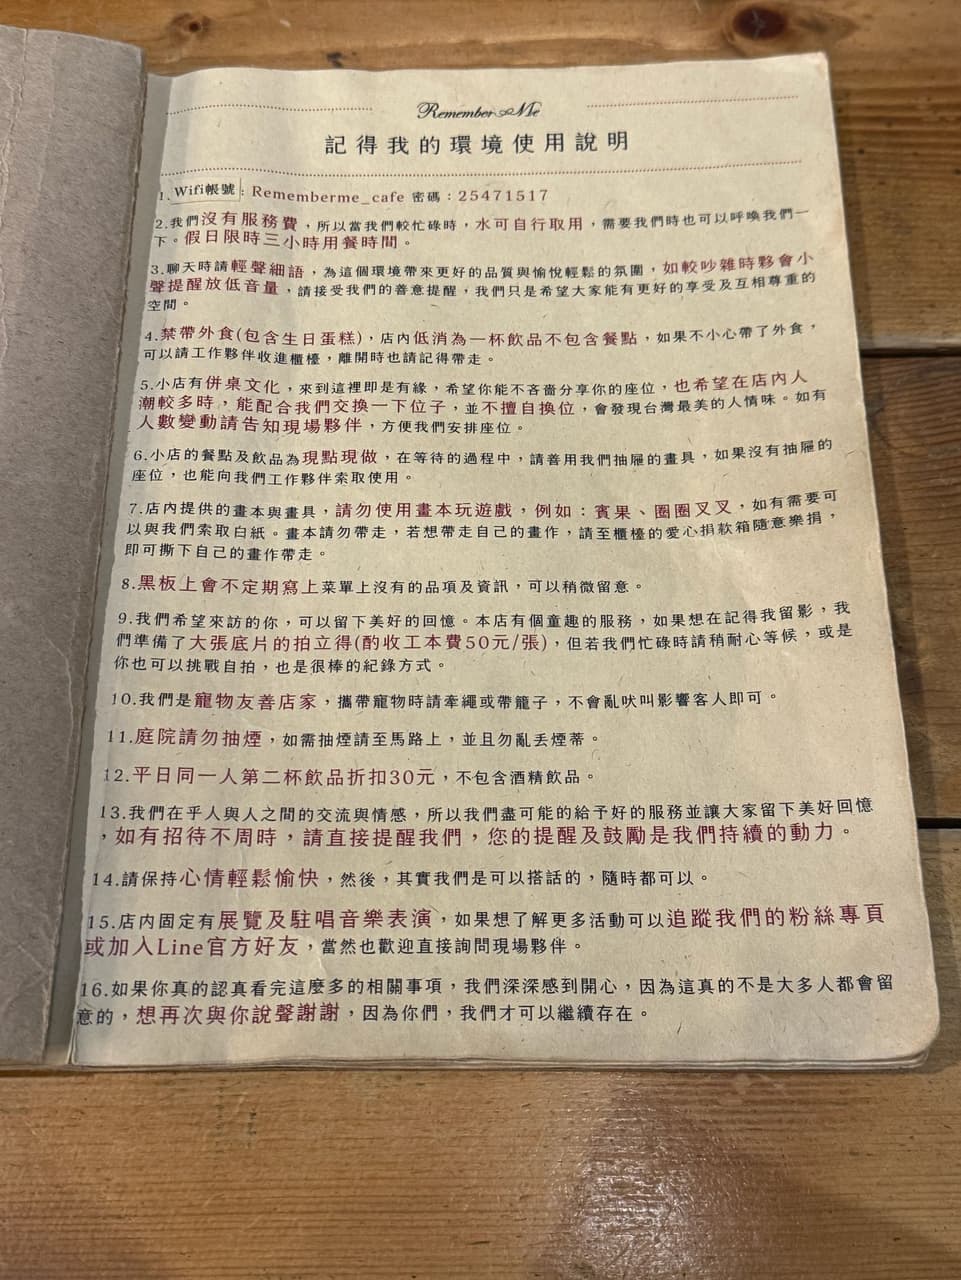 Remember Me
記得我的環境使用說明
1.Wifi帳號：Rememberme_cafe 密碼：25471517
2.我們沒有服務費，所以當我們較忙碌時，水可自行取用，需要我們時也可以呼喚我們一
下。假日限時三小時用餐時間。
3.聊天時請輕聲細語，為這個環境帶來更好的品質與愉悅輕鬆的氛圍，如較吵雜時夥會小
聲提醒放低音量，請接受我們的善意提醒，我們只是希望大家能有更好的享受及互相尊重的
空間。
4.禁帶外食(包含生日蛋糕)，店內低消為一杯飲品不包含餐點，如果不小心帶了外食，
可以請工作夥伴收進櫃檯，離開時也請記得帶走。
5.小店有併桌文化，來到這裡即是有緣，希望你能不吝嗇分享你的座位，也希望在店內人
潮較多時，能配合我們交換一下位子，並不擅自換位，會發現台灣最美的人情味。如有
人數變動請告知現場夥伴，方便我們安排座位。
6.小店的餐點及飲品為現點現做，在等待的過程中，請善用我們抽屜的畫具，如果沒有抽屜的
座位，也能向我們工作夥伴索取使用。
7.店內提供的畫本與畫具，請勿使用畫本玩遊戲，例如：賓果、圈圈叉叉，如有需要可
以與我們索取白紙。畫本請勿帶走，若想帶走自己的畫作，請至櫃檯的愛心捐款箱隨意樂捐，
即可撕下自己的畫作帶走。
8.黑板上會不定期寫上菜單上沒有的品項及資訊，可以稍微留意。
9.我們希望來訪的你，可以留下美好的回憶。本店有個童趣的服務，如果想在記得我留影，我
們準備了大張底片的拍立得(酌收工本費50元/張)，但若我們忙碌時請稍耐心等候，或是
你也可以挑戰自拍，也是很棒的紀錄方式。
10.我們是寵物友善店家，攜帶寵物時請牽繩或帶籠子，不會亂吠叫影響客人即可。
11.庭院請勿抽煙，如需抽煙請至馬路上，並且勿亂丟煙蒂。
12.平日同一人第二杯飲品折扣30元，不包含酒精飲品。
13.我們在乎人與人之間的交流與情感，所以我們盡可能的給予好的服務並讓大家留下美好回憶
，如有招待不周時，請直接提醒我們，您的提醒及鼓勵是我們持續的動力。
14.請保持心情輕鬆愉快，然後，其實我們是可以搭話的，隨時都可以。
15.店內固定有展覽及駐唱音樂表演，如果想了解更多活動可以追蹤我們的粉絲專頁
或加入Line官方好友，當然也歡迎直接詢問現場夥伴。
16.如果你真的認真看完這麼多的相關事項，我們深深感到開心，因為這真的不是大多人都會留
意的，想再次與你說聲謝謝，因為你們，我們才可以繼續存在。